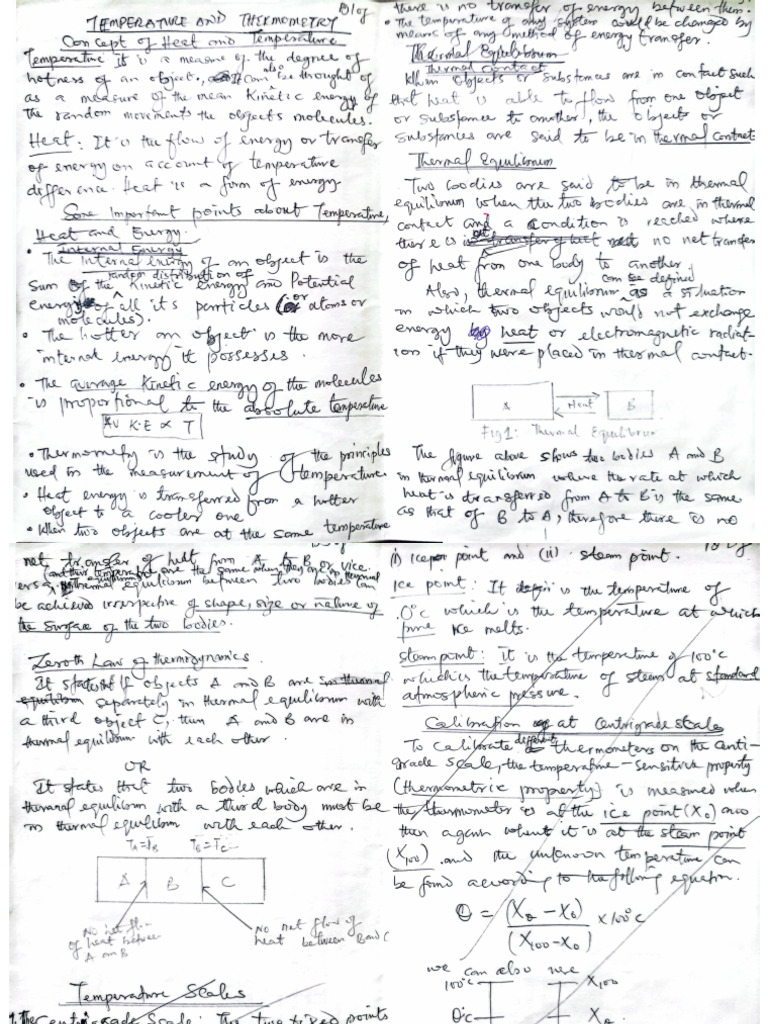 Blog
TEMPERATURE AND THERMOMETRY
Concept of Heat and Temperature
Temperature it is a measure of the degree of
hotness of an object, It can also be thought of
as a measure of the mean Kinetic energy of
the random movements the objects molecules.
Heat: It is the flow of energy or transfer
of energy on account of temperature
difference. Heat is a form of energy
Some Important points about Temperature,
Heat and Energy.
• Internal Energy
The Internal energy of an object is the
random distribution of
sum of the Kinetic energy and Potential
energy of all it's particles (or atoms or
molecules).
• The hotter an object is the more
internal energy it possesses.
• The average Kinetic energy of the molecules
is proportional to the absolute temperature
Av K.E ∝ T
• Thermometry is the study of the principles
used in the measurement of temperature
• Heat energy is transferred from a hotter
object to a cooler one
• When two objects are at the same temperature
there is no transfer of energy between them.
• The temperature of any system could be changed by
means of any method of energy transfer.
Thermal Equilibrium
Thermal Contact
When objects or substances are in contact such
that heat is able to flow from one object
or substance to another, the objects or
substances are said to be in thermal contact
Thermal Equilibrium
Two bodies are said to be in thermal
equilibrium when the two bodies are in thermal
contact and a condition is reached where
there is no net transfer
of heat from one body to another.
can be defined
Also, thermal equilibrium as a situation
in which two objects would not exchange
energy by heat or electromagnetic radiat-
ion if they were placed in thermal contact.
A Heat B
Fig 1: Thermal Equilibrium
The figure above shows two bodies A and B
in thermal equilibrium where the rate at which
heat is transferred from A to B is the same
as that of B to A, therefore there is no
net transfer of heat from A to B
(and their temperature are the same when they are) vice
ersa, thermal equilibrium between two bodies can
be achieved irrespective of shape, size or nature of
the surface of the two bodies.
Zeroth Law of thermodynamics.
It states that If objects A and B are in thermal
equilibrium seperately in thermal equilibrium with
a third object C, then A and B are in
thermal equilibrium with each other.
OR
It states that two bodies which are in
thermal equilibrium with a third body must be
in thermal equilibrium with each other.
TA=TB TB=TC
A B C
No net flow
of heat between
A and B
No net flow of
heat between B and C
Temperature Scales
1. The Centigrade Scale: The two fixed points
i) Ice point and (ii) steam point.
Ice point: It is the temperature of
0°c which is the temperature at which
pure Ice melts.
steam point: it is the temperature of 100°c
which is the temperature of steam at standard
atmospheric pressure.
Calibration at Centrigrade Scale
To calibrate different thermometers on the Centi-
grade Scale, the temperature-sensitive property
(thermometric property) is measured when
the thermometer is at the ice point (X₀) and
then again when it is at the steam point
(X₁₀₀) and the unknown temperature can
be found according to the following equation.
θ = (Xθ - X₀) / (X₁₀₀ - X₀) × 100°c
we can also use
100°c X₁₀₀
0°c Xθ